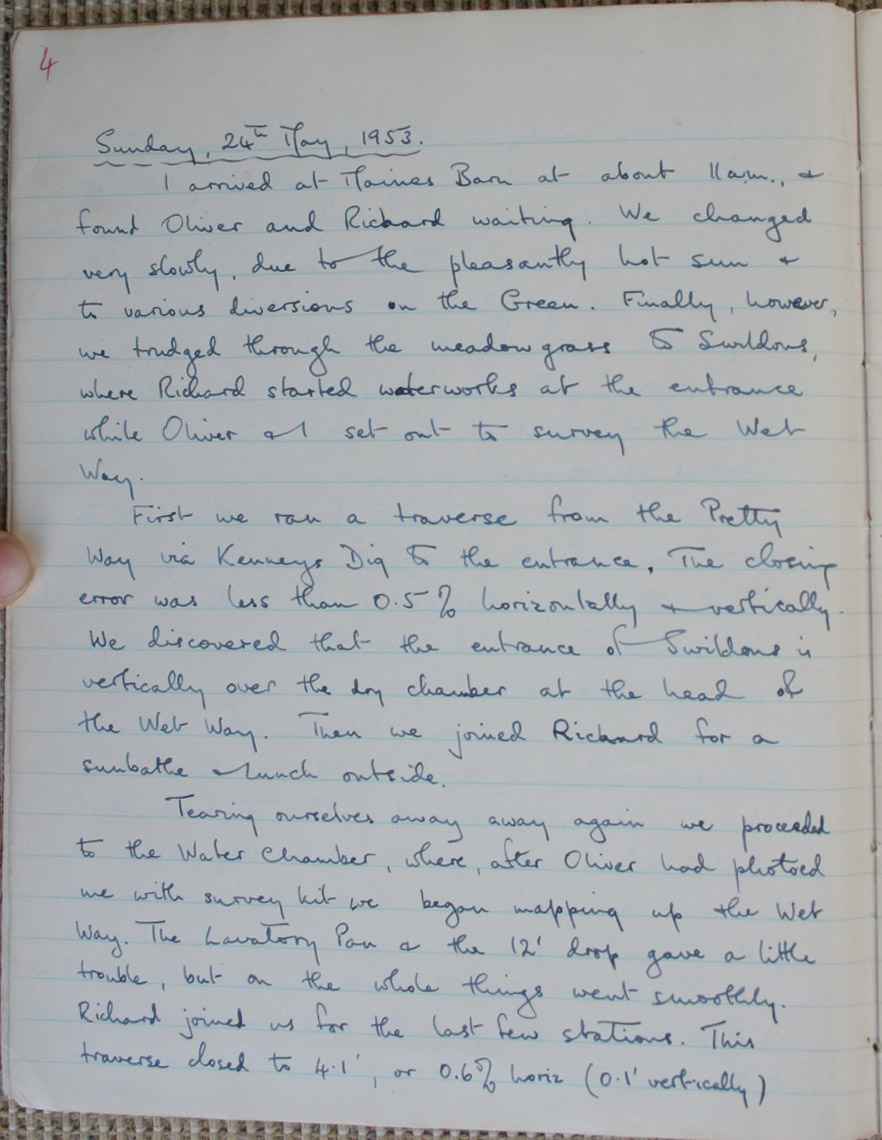 4
Sunday, 24th May, 1953.
I arrived at Maines Barn at about 11 a.m., &
found Oliver and Richard waiting. We changed
very slowly, due to the pleasantly hot sun &
to various diversions on the Green. Finally, however,
we trudged through the meadow grass to Swildons,
where Richard started waterworks at the entrance
while Oliver & I set out to survey the Wet
Way.
First we ran a traverse from the Pretty
Way via Kenneys Dig to the entrance. The closing
error was less than 0.5% horizontally & vertically.
We discovered that the entrance of Swildons is
vertically over the dry chamber at the head of
the Wet Way. Then we joined Richard for a
sunbathe & lunch outside.
Tearing ourselves away away again we proceeded
to the Water Chamber, where, after Oliver had photoed
me with survey kit we began mapping up the Wet
Way. The Lavatory Pan & the 12' drop gave a little
trouble, but on the whole things went smoothly.
Richard joined us for the last few stations. This
traverse closed to 4.1', or 0.6% horiz (0.1' vertically)